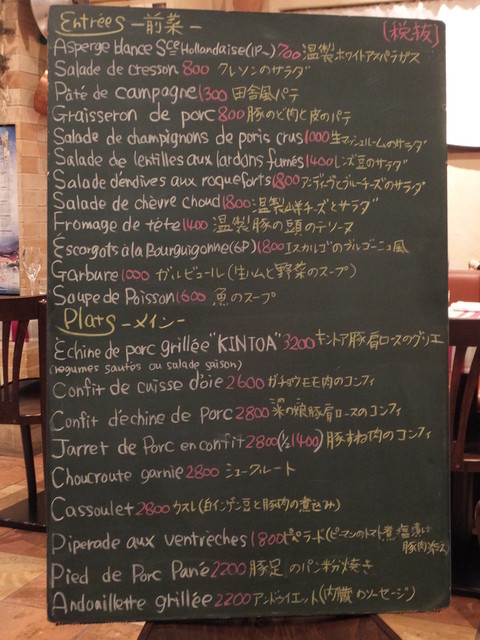 Entrées -前菜- [税抜]
Asperge blance Sce Hollandaise(1P~) 700 温製ホワイトアスパラガス
Salade de cresson 800 クレソンのサラダ
Pâté de campagne 1300 田舎風パテ
Graisseron de porc 800 豚のど肉と皮のパテ
Salade de champignons de paris crus 1000 生マッシュルームのサラダ
Salade de lentilles aux lardons fumés 1400 レンズ豆のサラダ
Salade d'endives aux roqueforts 1800 アンディーヴとブルーチーズのサラダ
Salade de chèvre chaud 1800 温製山羊チーズとサラダ
Fromage de tête 1400 温製豚の頭のテリーヌ
Escargots à la Bourguigonne(6P) 1800 エスカルゴのブルゴーニュ風
Garbure 1000 ガルビュール(生ハムと野菜のスープ)
Soupe de Poisson 1600 魚のスープ
Plats -メイン-
Echine de porc grillée "KINTOA" 3200 キントア豚肩ロースのグリエ
(legumes sautés ou salade saison)
Confit de cuisse d'oie 2600 ガチョウモモ肉のコンフィ
Confit d'échine de Porc 2800 豚肩ロースのコンフィ
Jarret de Porc en confit 2800 (½ 1400) 豚すね肉のコンフィ
Choucroute garnie 2800 シュークルート
Cassoulet 2800 カスレ(白インゲン豆と豚肉の煮込み)
Piperade aux ventrèches 1800 ピペラード(ピーマンのトマト煮 塩漬け
豚肉添え)
Pied de Porc Pané 2200 豚足のパン粉焼き
Andouillette grillée 2200 アンドゥイエット(内臓のソーセージ)